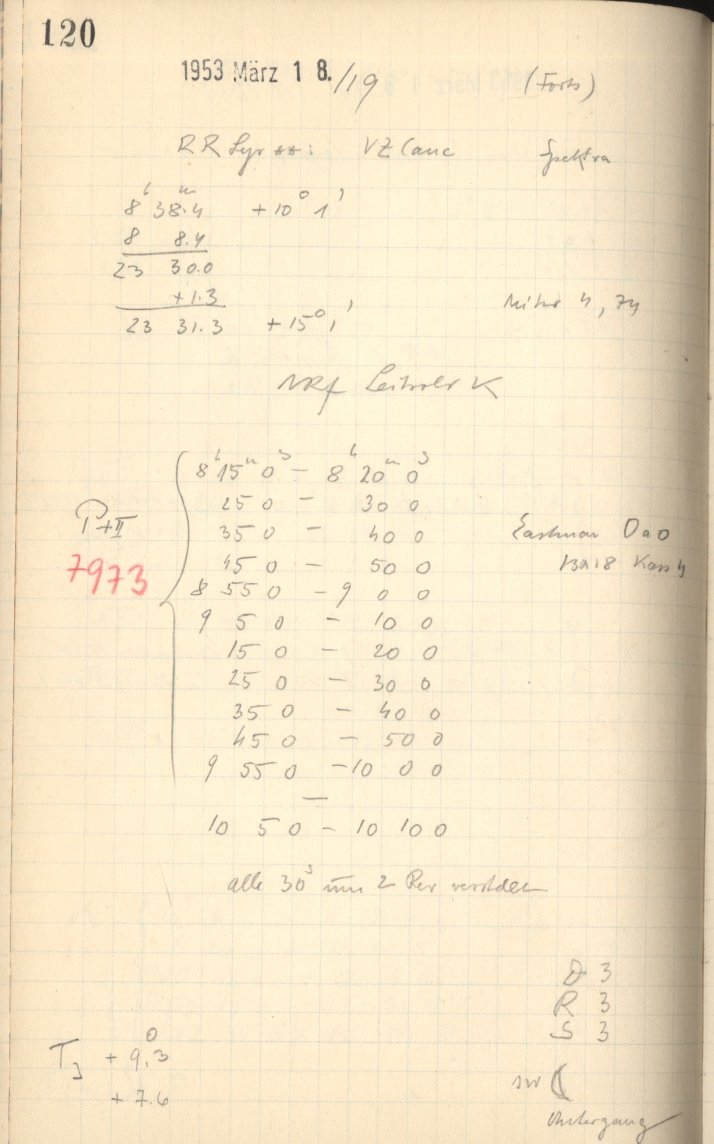 120
1953 März 18./19 (Forts)
RR Lyr **: VZ Canc Spektra
8h 38.4m +10° 1'
8 8.4
23 30.0
+1.3
23 31.3 +15° 1'
4, 74
NRf K
8h 15m 0s - 8h 20m 0s
25 0 - 30 0
P+II 35 0 - 40 0 Eastman OaO
7973 45 0 - 50 0 Kass 4
8 55 0 - 9 0 0
9 5 0 - 10 0
15 0 - 20 0
25 0 - 30 0
35 0 - 40 0
45 0 - 50 0
9 55 0 - 10 0 0
—
10 5 0 - 10 10 0
alle 30s um 2 Rev
D 3
R 3
S 3
T3 + 9.3°
+ 7.6
Untergang